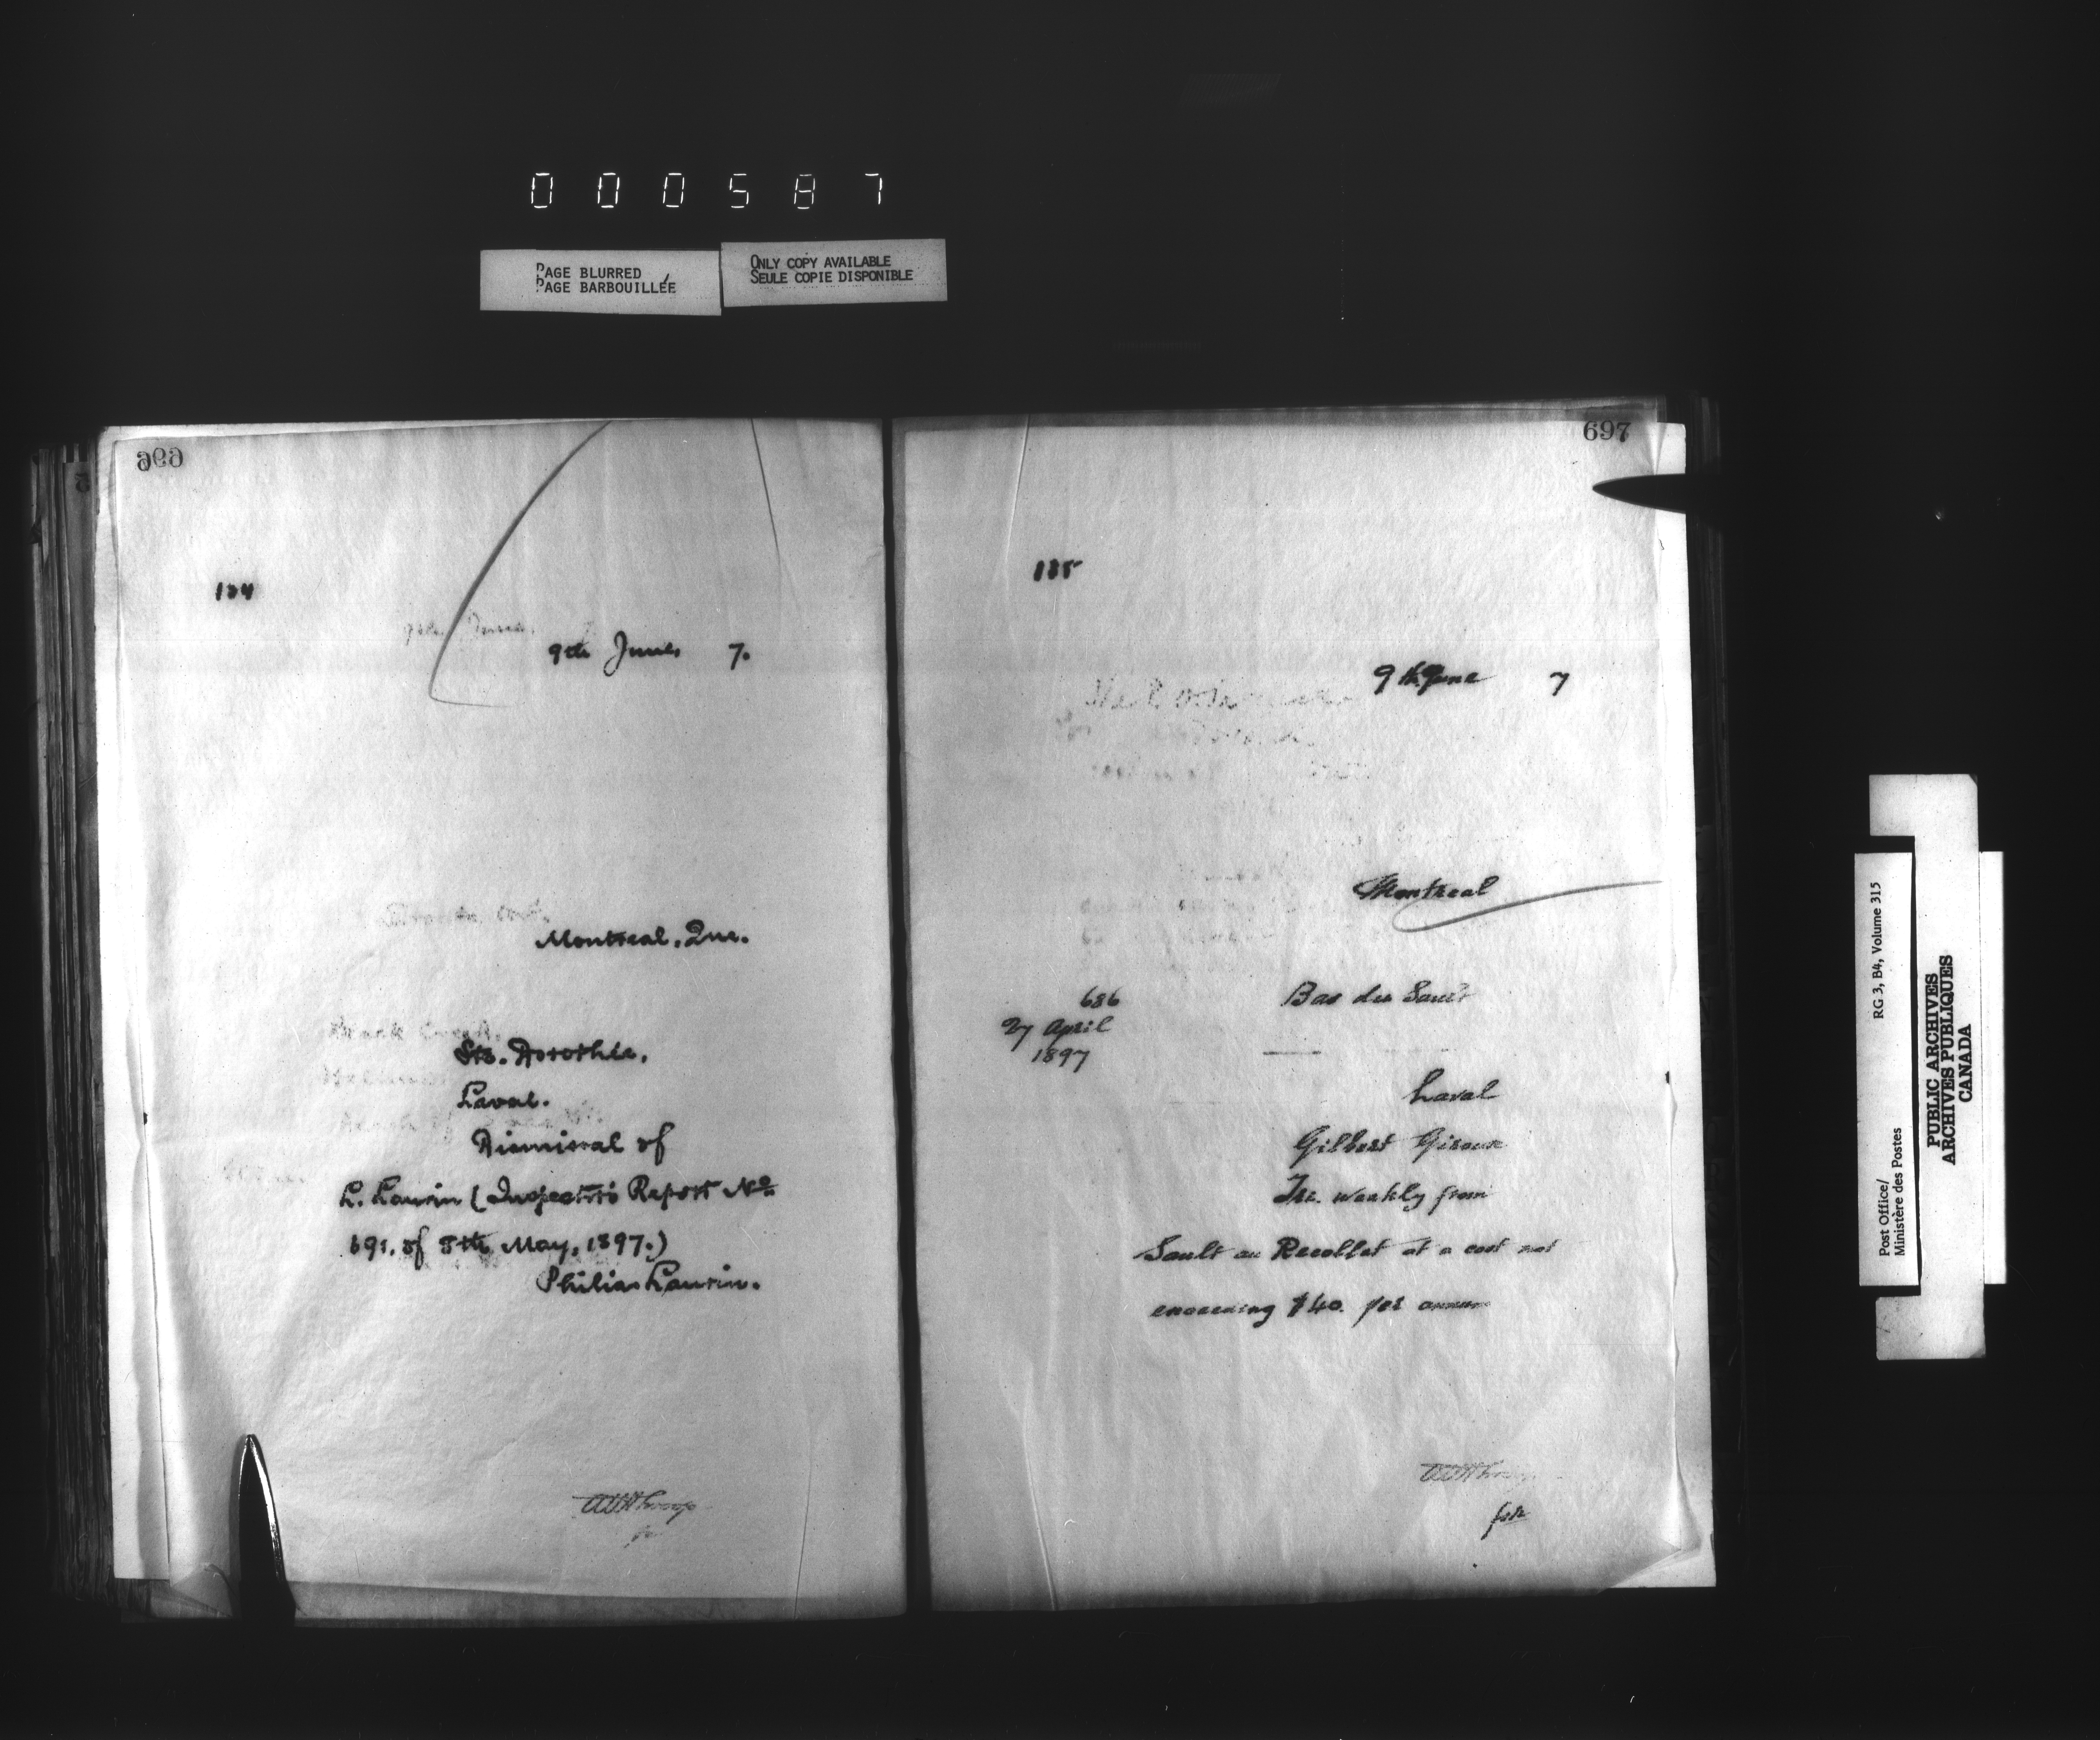 000587
PAGE BLURRED
PAGE BARBOUILLÉE
ONLY COPY AVAILABLE
SEULE COPIE DISPONIBLE
696
134
9th June, 7.
Montreal, Que.
Ste. Dorothée,
Laval.
Dismissal of
L. Laurin (Inspector's Report No
691, of 8th May, 1897.)
Philias Laurin.
697
135
9th June 7
Montreal
686
27 April
1897
Bas du Sault
Laval
Gilbert Giroux
Tri. weekly from
Sault au Recollet at a cost not
exceeding $40. per annum
for
Post Office/
Ministère des Postes
RG 3, B4, Volume 315
PUBLIC ARCHIVES
ARCHIVES PUBLIQUES
CANADA